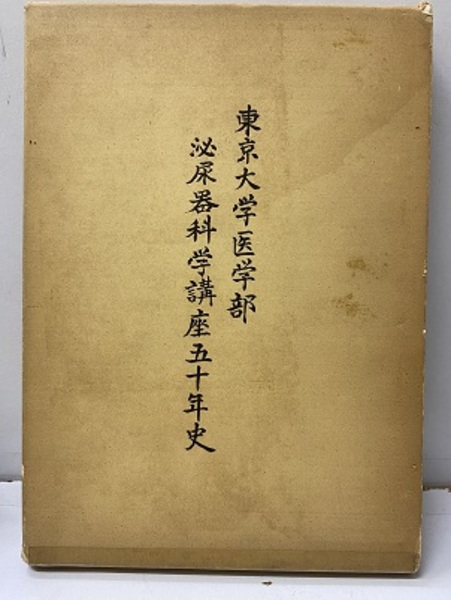 東京大学医学部
泌尿器科学講座五十年史